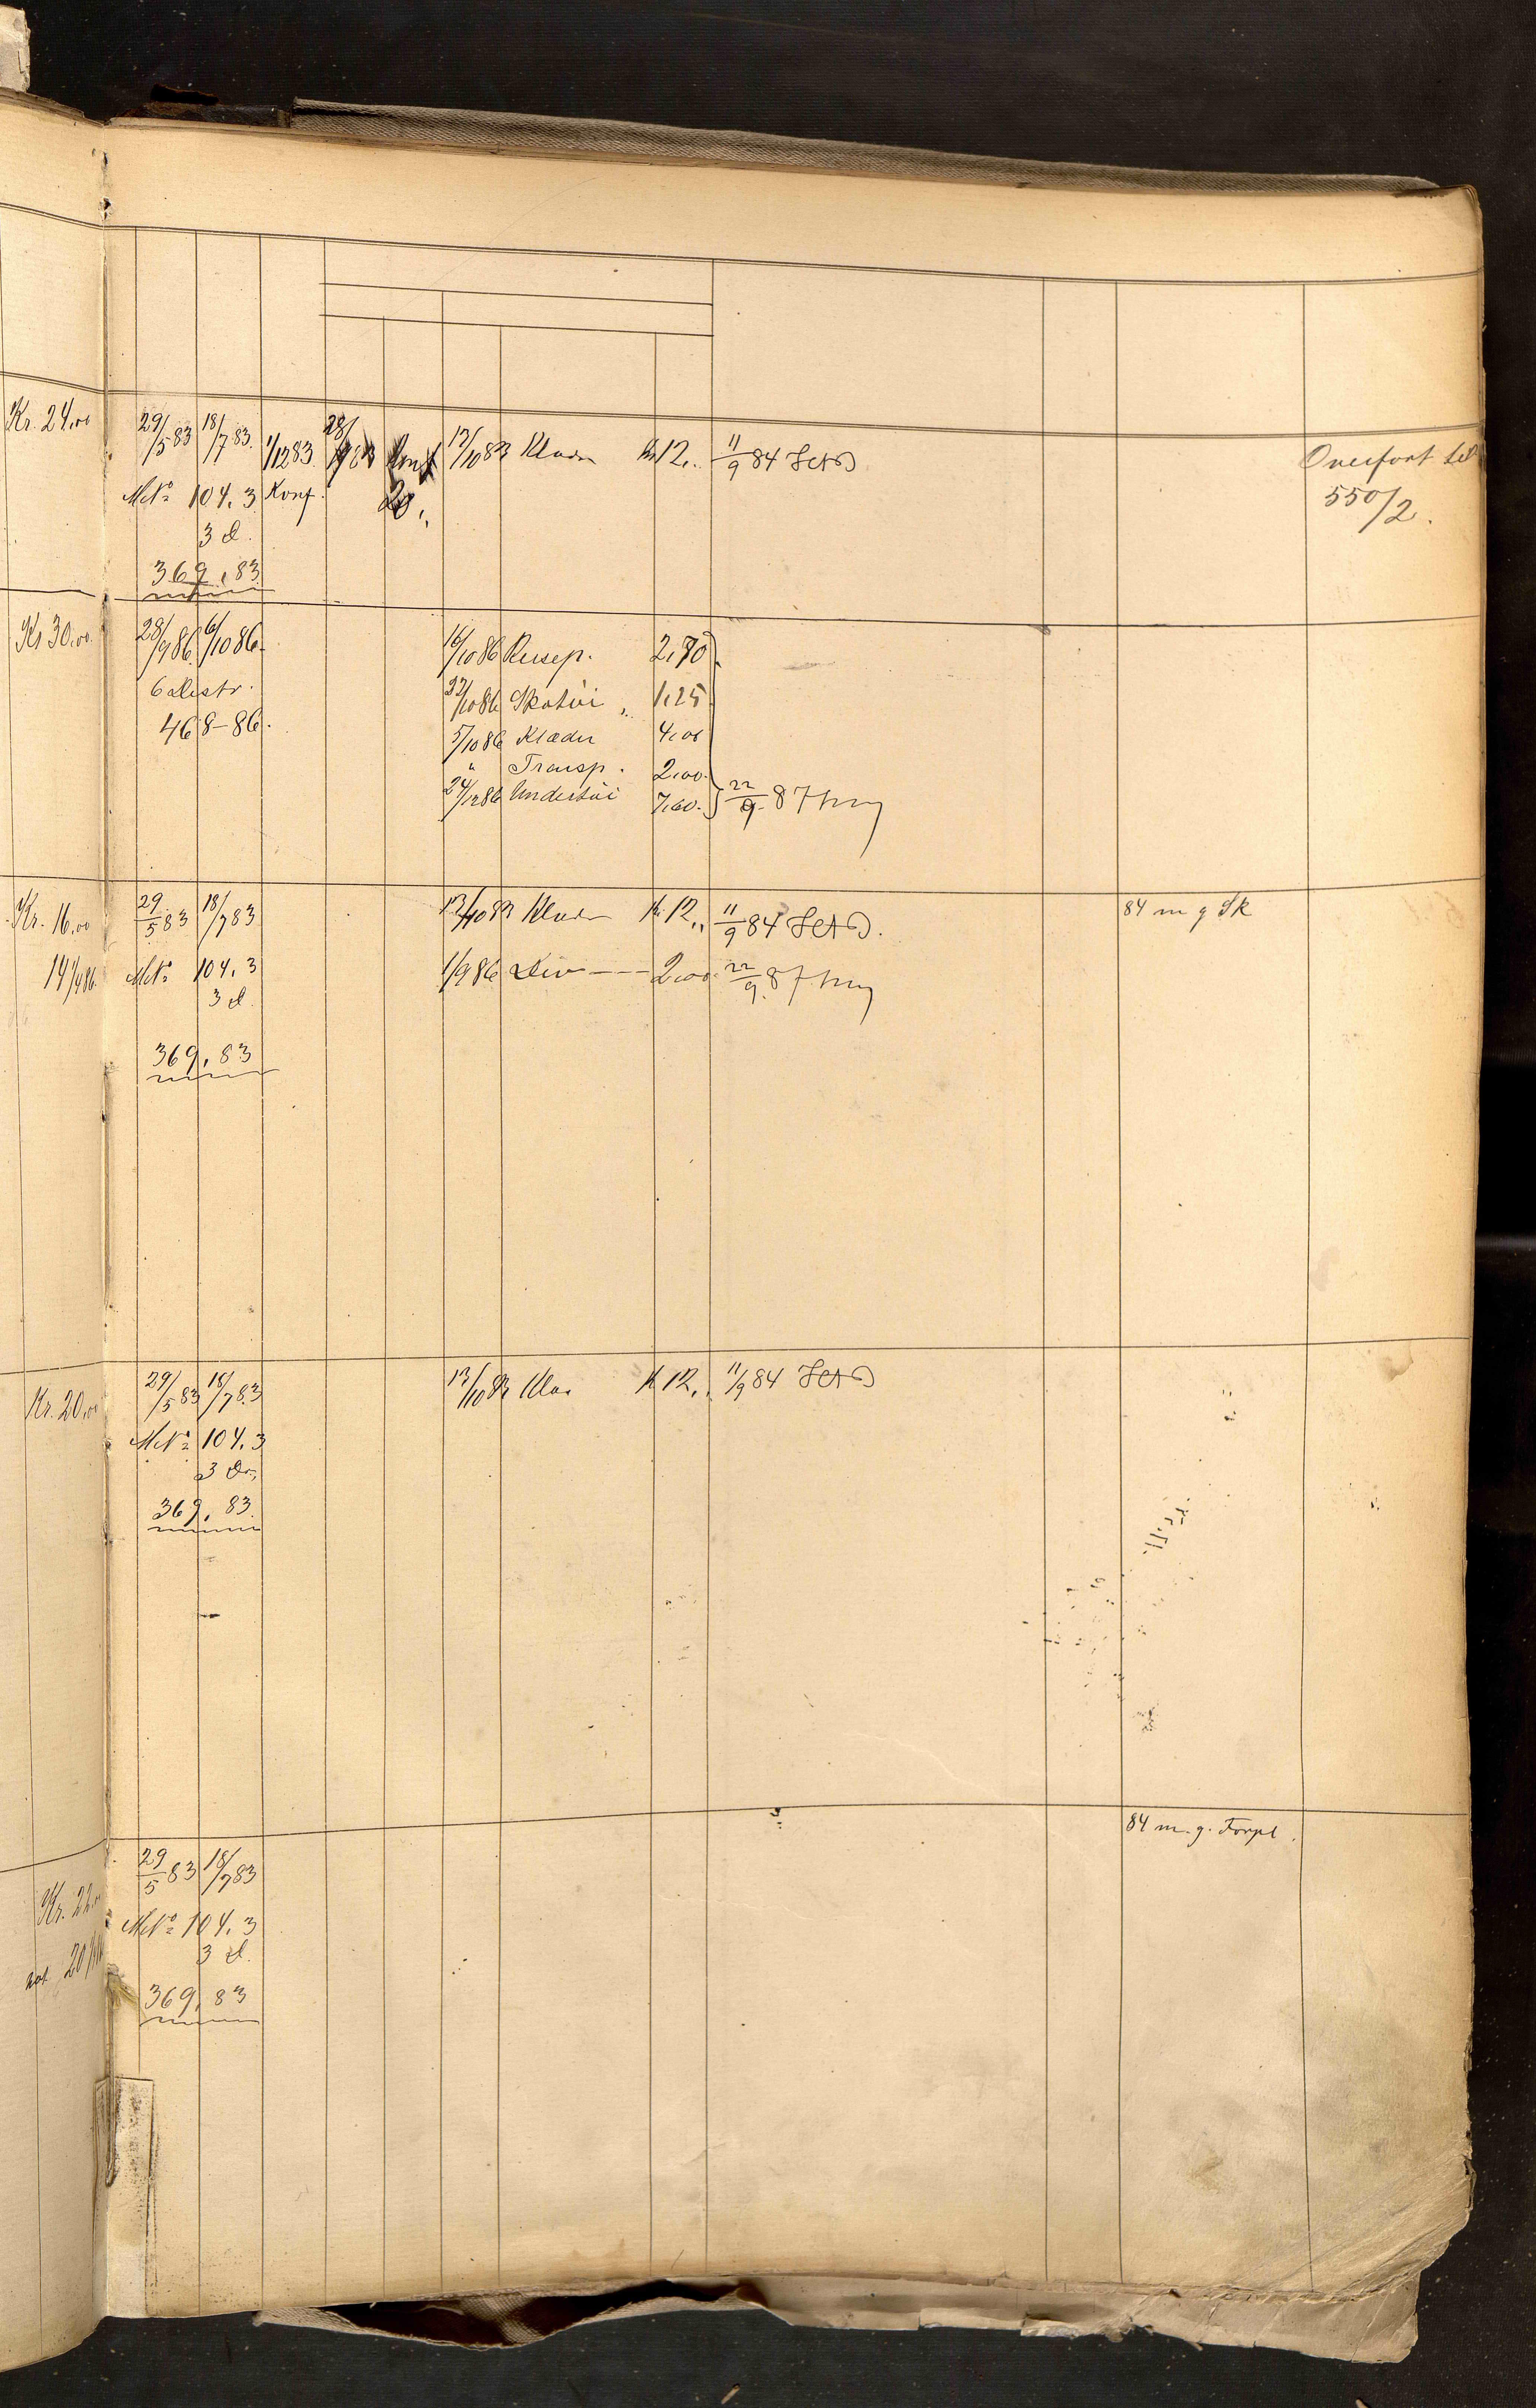 Kr. 24,00
29/5 83 18/7 83 1/12 83 28/ 13/10 83 Klæder Kr 12,, 11/9 84
Overført til
M No 104.3 Konf. 20,,
550/2.
3 d.
369,83
Kr 30,00
28/9 86 6/10 86 16/10 86 Resep. 2,70
6 Distr. 22/10 86 Skotøi 1,25
468-86. 5/10 86 Klæder 4,00
" Transp. 2,00
24/12 86 Undertøi 7,60 22/9 87
Kr. 16,00
29/5 83 18/7 83 13/10 83 Klæder Kr 12,, 11/9 84
84 m g Sk
14 1/4 86
M No 104.3 1/9 86 Div 2,00 22/9 87
3 d.
369,83
Kr. 20,00
29/5 83 18/7 83 13/10 83 Klæ K 12,, 11/9 84
M No 104.3
3 D
369,83.
84 m. g. Forpl.
Kr. 22,00
29/5 83 18/7 83
M No 104.3
3 d.
369,83